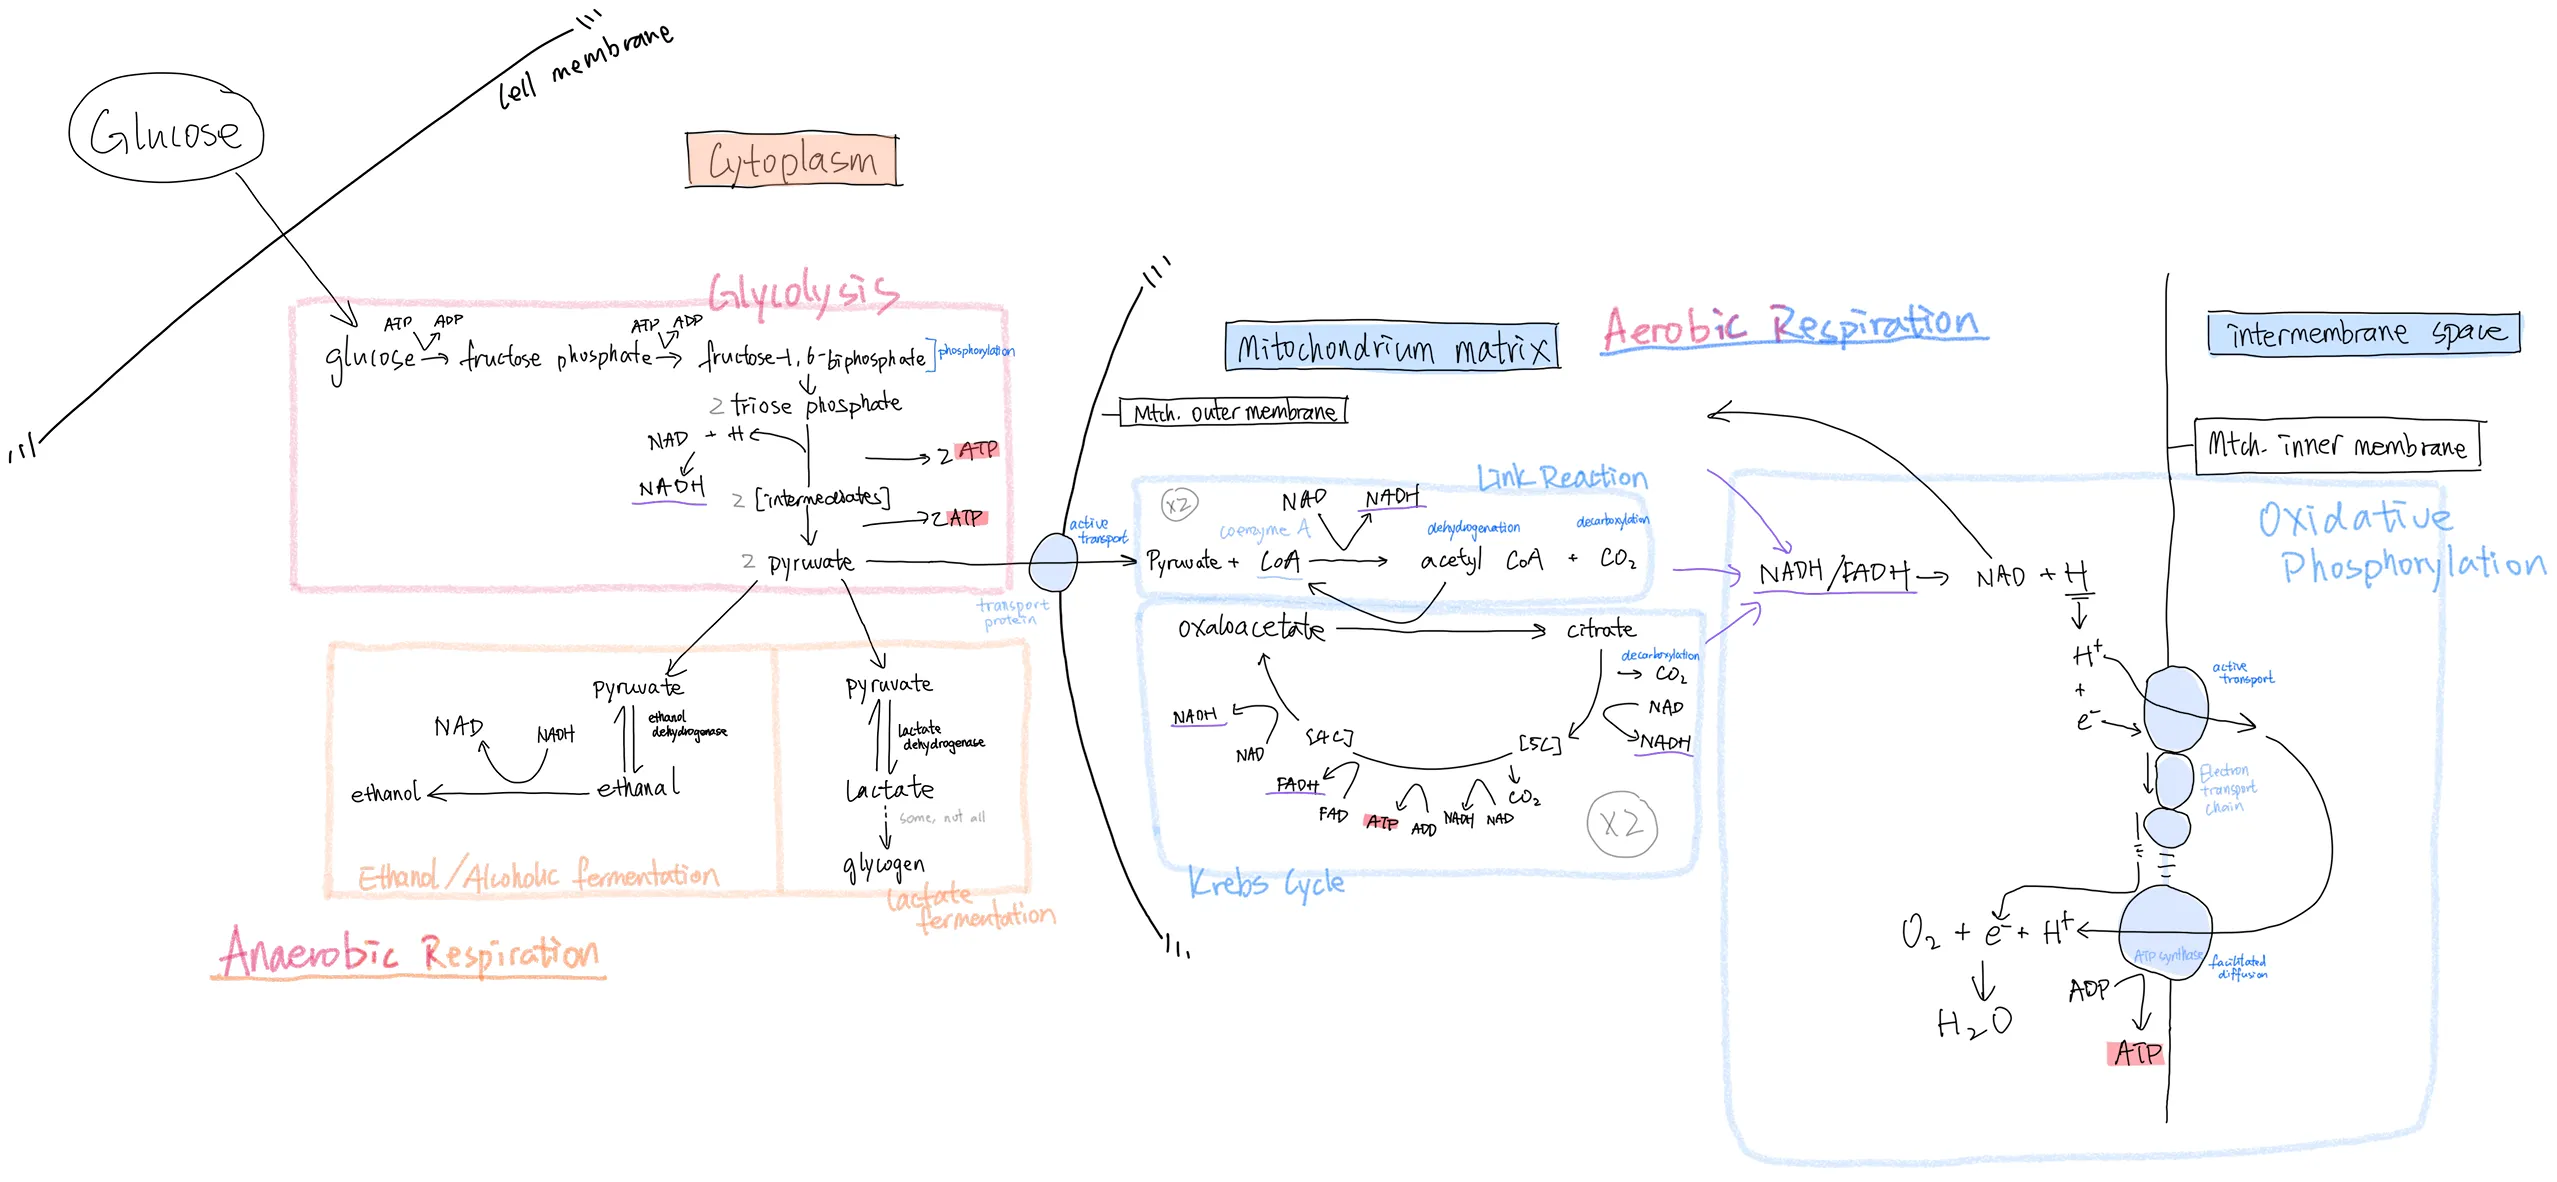 Cell membrane
Glucose
Cytoplasm
Glycolysis
ATP ADP
ATP ADP
glucose → fructose phosphate → fructose-1,6-biphosphate ] phosphorylation
2 triose phosphate
NAD + H
2 ATP
NADH
2 [intermediates]
2 ATP
2 pyruvate
active transport
transport protein
pyruvate
ethanol dehydrogenase
NAD
NADH
ethanol
ethanal
Ethanol/Alcoholic fermentation
pyruvate
Lactate dehydrogenase
Lactate
some, not all
glycogen
Lactate fermentation
Anaerobic Respiration
Mitochondrium matrix
Mtch. outer membrane
Aerobic Respiration
Link Reaction
x2
NAD NADH
coenzyme A
dehydrogenation
decarboxylation
Pyruvate + CoA → acetyl CoA + CO2
oxaloacetate
citrate
decarboxylation
→ CO2
NAD
NADH
[5C]
CO2
NAD
NADH
ADD
ATP
FAD
FADH
[4C]
NAD
NADH
x2
Krebs Cycle
intermembrane space
Mtch. inner membrane
Oxidative Phosphorylation
NADH/FADH → NAD + H
H+
+
e-
active transport
Electron transport chain
O2 + e- + H+
ATP synthase
facilitated diffusion
H2O
ADP
ATP